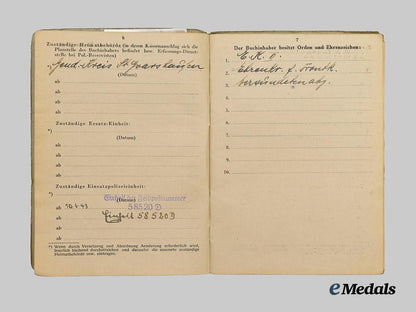 6
Zuständige Heimatbehörde (in deren Kassenanschlag sich die
Planstelle des Buchinhabers befindet bzw. Erfassungs-Dienst-
stelle bei Pol.-Reservisten)
Gend.-Kreis St. Goarshausen
(Datum)
ab
ab
ab
Zuständige Ersatz-Einheit:
*)
(Datum)
ab
ab
ab
Zuständige Einsatzpolizeieinheit:
*)
Einheit bei Feldpostnummer
(Datum)
58520 D
ab 10.6.43
ab Einheit 58520 D
ab
ab
*) Wenn durch Versetzung und Abordnung Aenderung erforderlich wird,
jeweils
Heimatbehörde usw. eintragen.
7
Der Buchinhaber besitzt Orden und Ehrenzeichen:
1. E.K. II.
2. Ehrenkr. f. Frontk.
3. Verwundetenabz.
4.
5.
6.
7.
8.
9.
10.
eMedals